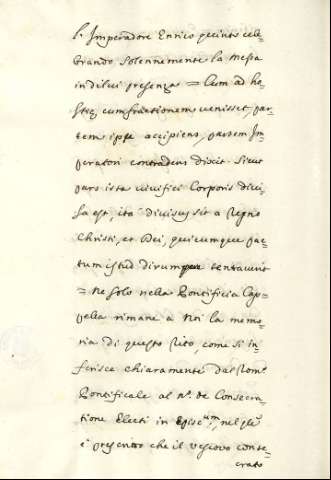 l'Imperadore Enrico quinto cele-
brando solennemente la Messa
in di lui presenza = Cum ad ho-
stiæ cumfractionem venisset, par-
tem ipse accipiens, partem Im-
peratori contradens dixit. Sicut
pars ista vivifici Corporis divi-
sa est, ita divisus sit a Regno
Christi, et Dei, quicumque pac-
tum istud dirumpere tentaverit
= Ne solo nella Pontificia Cap-
pella rimane a Noi la memo-
ria di questo Rito, come si in-
ferisce chiaramente dal Rom.
Pontificale al N.º de Consecra-
tione Electi in Episc.um, nel
è prescritto che il vescovo conse-
crato